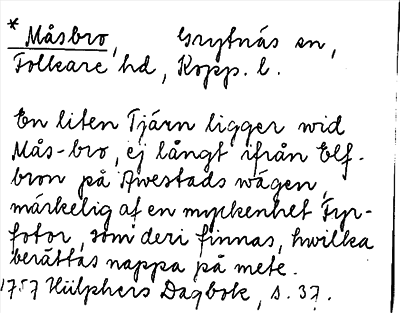 * Måsbro, Grytnäs sn,
Folkare hd, Kopp. l.
En liten Tjärn ligger wid
Mås-bro, ej långt ifrån Elf-
bron på Awestads wägen,
märkelig af en myckenhet Fyr-
fotor, som deri finnas, hwilka
berättas nappa på mete.
1757 Hülphers Dagbok, s. 37.